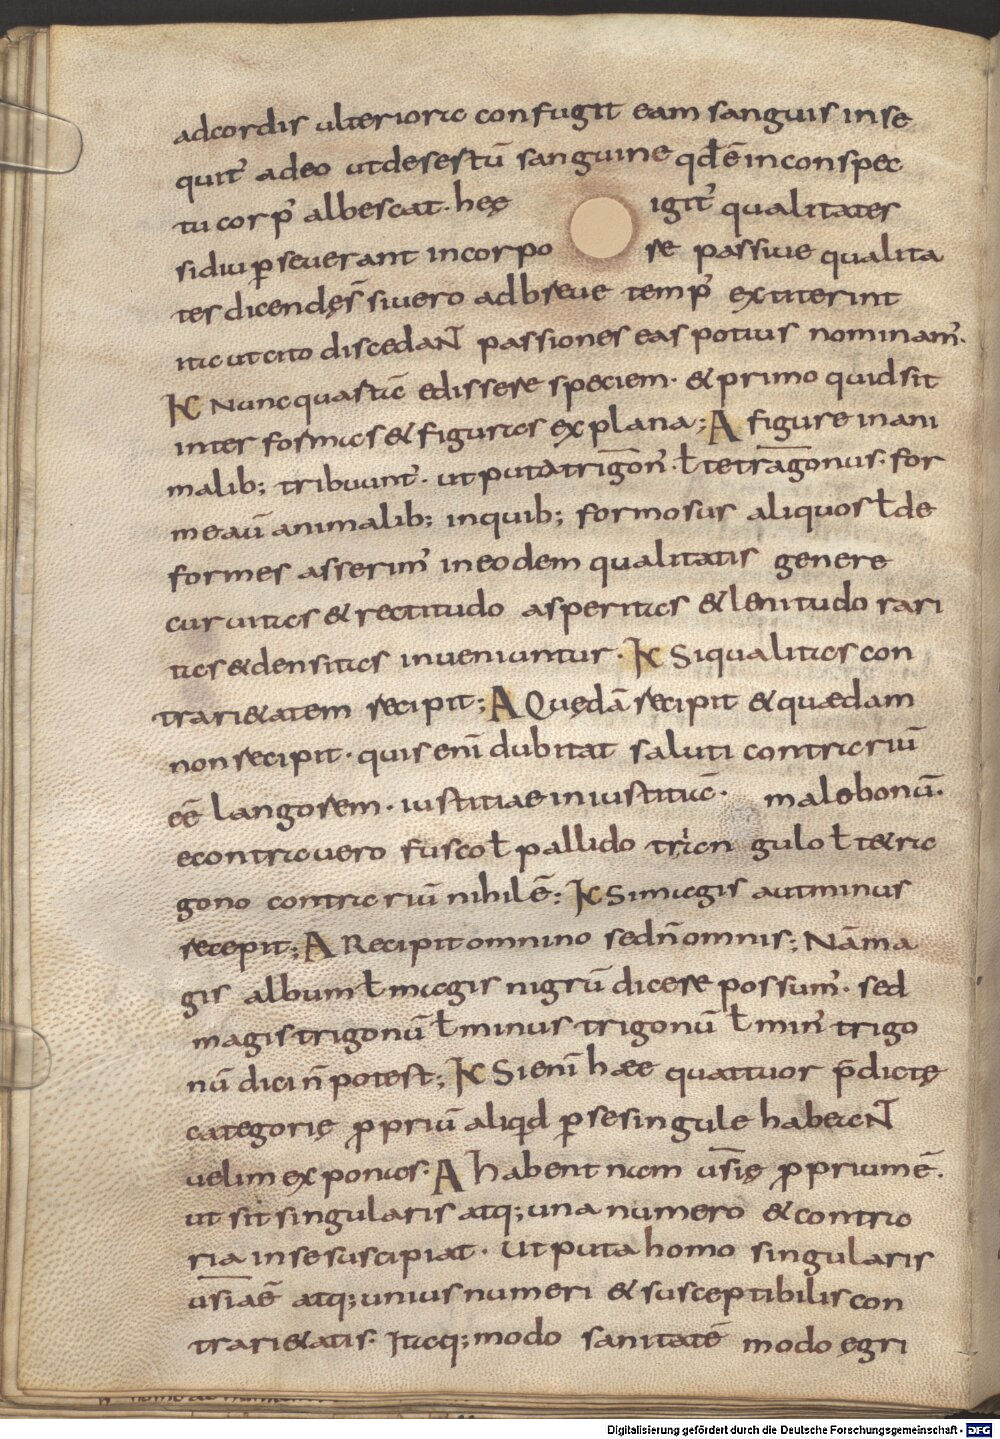 adcordis ulteriora confugit eam sanguis inse
quit᷑ adeo utdesestū sanguine qđē inconspec
tu corp᷑ albescat. hęę igit᷑ qualitates
sidiu ꝑseuerant incorpo se passiue qualita
tes dicendęs̄ sivero adbreue temp᷑ extiterint
ita utcito discedaɴt passiones eas potius nominam᷑.
K Nunc quartā edissere speciem. & primo quid sit
inter formas & figuras explana; A figure in ani
malib; tribuunt᷑. ut puta trigōn᷑. ł tetrāgonus. for
me aū animalib; inquib; formosus aliquos ł de
formes asserim᷑ in eodem qualitatis genere
curuitas & rectitudo asperitas & lenitudo rari
tas & densitas inueniuntur. K Si qualitas con
trari&atem recipit; A Quędā recipit & quædam
non recipit. quis enī dubitat saluti contrariū
eē langorem. iustitiae iniustitiā. malo bonū.
econtra uero fusco ł pallido trian gulo ł t&ra
gono contrariū nihil ē; K Si magis aut minus
recepit; A Recipit omnino sed n̄ omnis; Nā ma
gis album ł magis nigrū dicere possum᷑. sed
magis trigonū ł minus trigonū ł min᷑ trigo
nū dici n̄ potest; K Si enī hæe quattuor p̄dictę
categorię ꝓpriū aliqđ ꝑ se singule habeaɴt
uelim exponas. A habent nam us̄ię ꝓprium ē.
ut sit singularis atq; una numero & contra
ria in se suscipiat. Ut puta homo singularis
us̄ia ē atq; unius numeri & susceptibilis con
trari&atis. Itaq; modo sanitatē modo ęgri
Digitalisierung gefördert durch die Deutsche Forschungsgemeinschaft - DFG